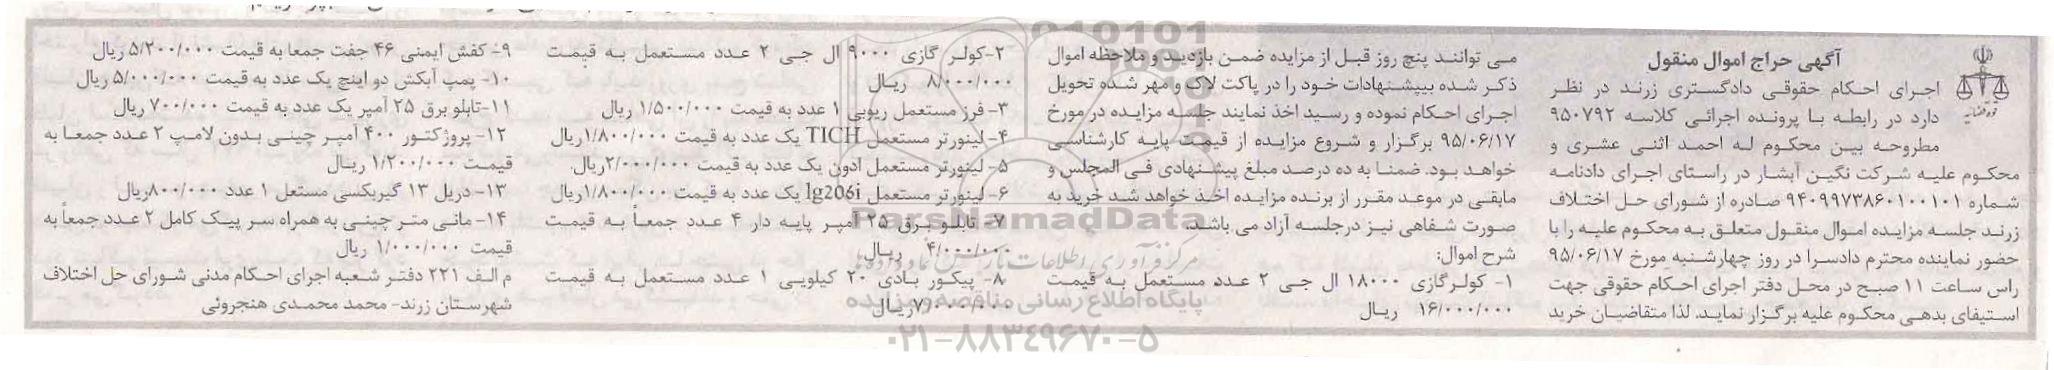 آگهی حراج اموال منقول
اجرای احکام حقوقی دادگستری زرند در نظر
دارد در رابطه با پرونده اجرائی کلاسه ۹۵۰۷۹۲
مطروحه بین محکوم له احمد اثنی عشری و
محکوم علیه شرکت نگین آبشار در راستای اجرای دادنامه
شماره ۹۴۰۹۹۷۳۸۶۰۱۰۰۱۰۱ صادره از شورای حل اختلاف
زرند جلسه مزایده اموال منقول متعلق به محکوم علیه را با
حضور نماینده محترم دادسرا در روز چهارشنبه مورخ ۹۵/۰۶/۱۷
راس ساعت ۱۱ صبح در محل دفتر اجرای احکام حقوقی جهت
استیفای بدهی محکوم علیه برگزار نماید. لذا متقاضیان خرید
می توانند پنج روز قبل از مزایده ضمن بازدید و ملاحظه اموال
ذکر شده بپیشنهادات خود را در پاکت لاک و مهر شده تحویل
اجرای احکام نموده و رسید اخذ نمایند جلسه مزایده در مورخ
۹۵/۰۶/۱۷ برگزار و شروع مزایده از قیمت پایه کارشناسی
خواهد بود. ضمنا به ده درصد مبلغ پیشنهادی فی المجلس و
مابقی در موعد مقرر از برنده مزایده اخذ خواهد شد خرید به
صورت شفاهی نیز درجلسه آزاد می باشد.
شرح اموال:
۱- کولرگازی ۱۸۰۰۰ ال جی ۲ عدد مستعمل به قیمت
۱۶/۰۰۰/۰۰۰ ریال
۲-کولر گازی ۹۰۰۰ ال جی ۲ عدد مستعمل به قیمت
۸/۰۰۰/۰۰۰ ریال
۳- فرز مستعمل ریوبی ۱ عدد به قیمت ۱/۵۰۰/۰۰۰ ریال
۴- لینورتر مستعمل TICH یک عدد به قیمت ۱/۸۰۰/۰۰۰ریال
۵- لینورتر مستعمل ادون یک عدد به قیمت ۲/۰۰۰/۰۰۰ریال
۶- لینورتر مستعمل lg206i یک عدد به قیمت ۱/۸۰۰/۰۰۰ریال
۷- تابلو برق ۲۵ آمپر پایه دار ۴ عدد جمعاً به قیمت
۴/۰۰۰/۰۰۰ ریال
۸- پیکور بادی ۲۰ کیلویی ۱ عدد مستعمل به قیمت
۷/۰۰۰/۰۰۰ریال
۹- کفش ایمنی ۴۶ جفت جمعا به قیمت ۵/۲۰۰/۰۰۰ ریال
۱۰- پمپ آبکش دو اینچ یک عدد به قیمت ۵/۰۰۰/۰۰۰ ریال
۱۱-تابلو برق ۲۵ آمپر یک عدد به قیمت ۷۰۰/۰۰۰ ریال
۱۲- پروژکتور ۴۰۰ آمپر چینی بدون لامپ ۲ عدد جمعا به
قیمت ۱/۲۰۰/۰۰۰ ریال
۱۳- دریل ۱۳ گیربکسی مستعل ۱ عدد ۸۰۰/۰۰۰ریال
۱۴- مانی متر چینی به همراه سر پیک کامل ۲ عدد جمعاً به
قیمت ۱/۰۰۰/۰۰۰ ریال
م الف ۲۲۱ دفتر شعبه اجرای احکام مدنی شورای حل اختلاف
شهرستان زرند- محمد محمدی هنجروئی
ParsNamadData
پایگاه اطلاع رسانی مناقصه و مزایده
۰۲۱-۸۸۳۴۹۶۷۰-۵